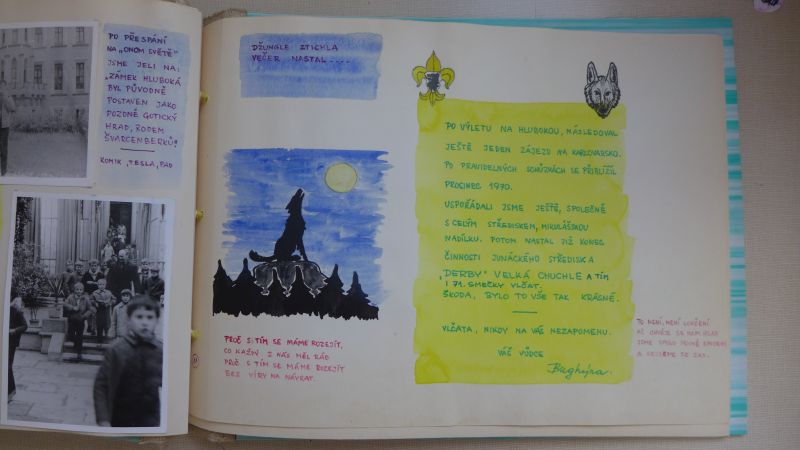 PO PŘESPÁNÍ
NA „ONOM SVĚTĚ"
JSME JELI NA:
„ZÁMEK HLUBOKÁ
BYL PŮVODNĚ
POSTAVEN JAKO
POZDNĚ GOTICKÝ
HRAD, RODEM
ŠVARCENBERKŮ"
KOMIK, TESLA, PAD
DŽUNGLE ZTICHLA
VEČER NASTAL....
PROČ S TÍM SE MÁME ROZEJÍT,
CO KAŽDÝ Z NÁS MĚL RÁD
PROČ S TÍM SE MÁME ROZEJÍT
BEZ VÍRY NA NÁVRAT.
PO VÝLETU NA HLUBOKOU, NÁSLEDOVAL
JEŠTĚ JEDEN ZÁJEZD NA KARLOVARSKO.
PO PRAVIDELNÝCH SCHŮZKÁCH SE PŘIBLÍŽIL
PROSINEC 1970.
USPOŘÁDALI JSME JEŠTĚ, SPOLEČNĚ
S CELÝM STŘEDISKEM, MIKULÁŠSKOU
NADÍLKU. POTOM NASTAL JIŽ KONEC
ČINNOSTI JUNÁCKÉHO STŘEDISKA
„DERBY" VELKÁ CHUCHLE A TÍM
I 71. SMEČKY VLČAT.
ŠKODA, BYLO TO VŠE TAK KRÁSNÉ.
VLČATA, NIKDY NA VÁS NEZAPOMENU.
VÁŠ VŮDCE
Baghýra.
TO NENÍ, NENÍ LOUČENÍ